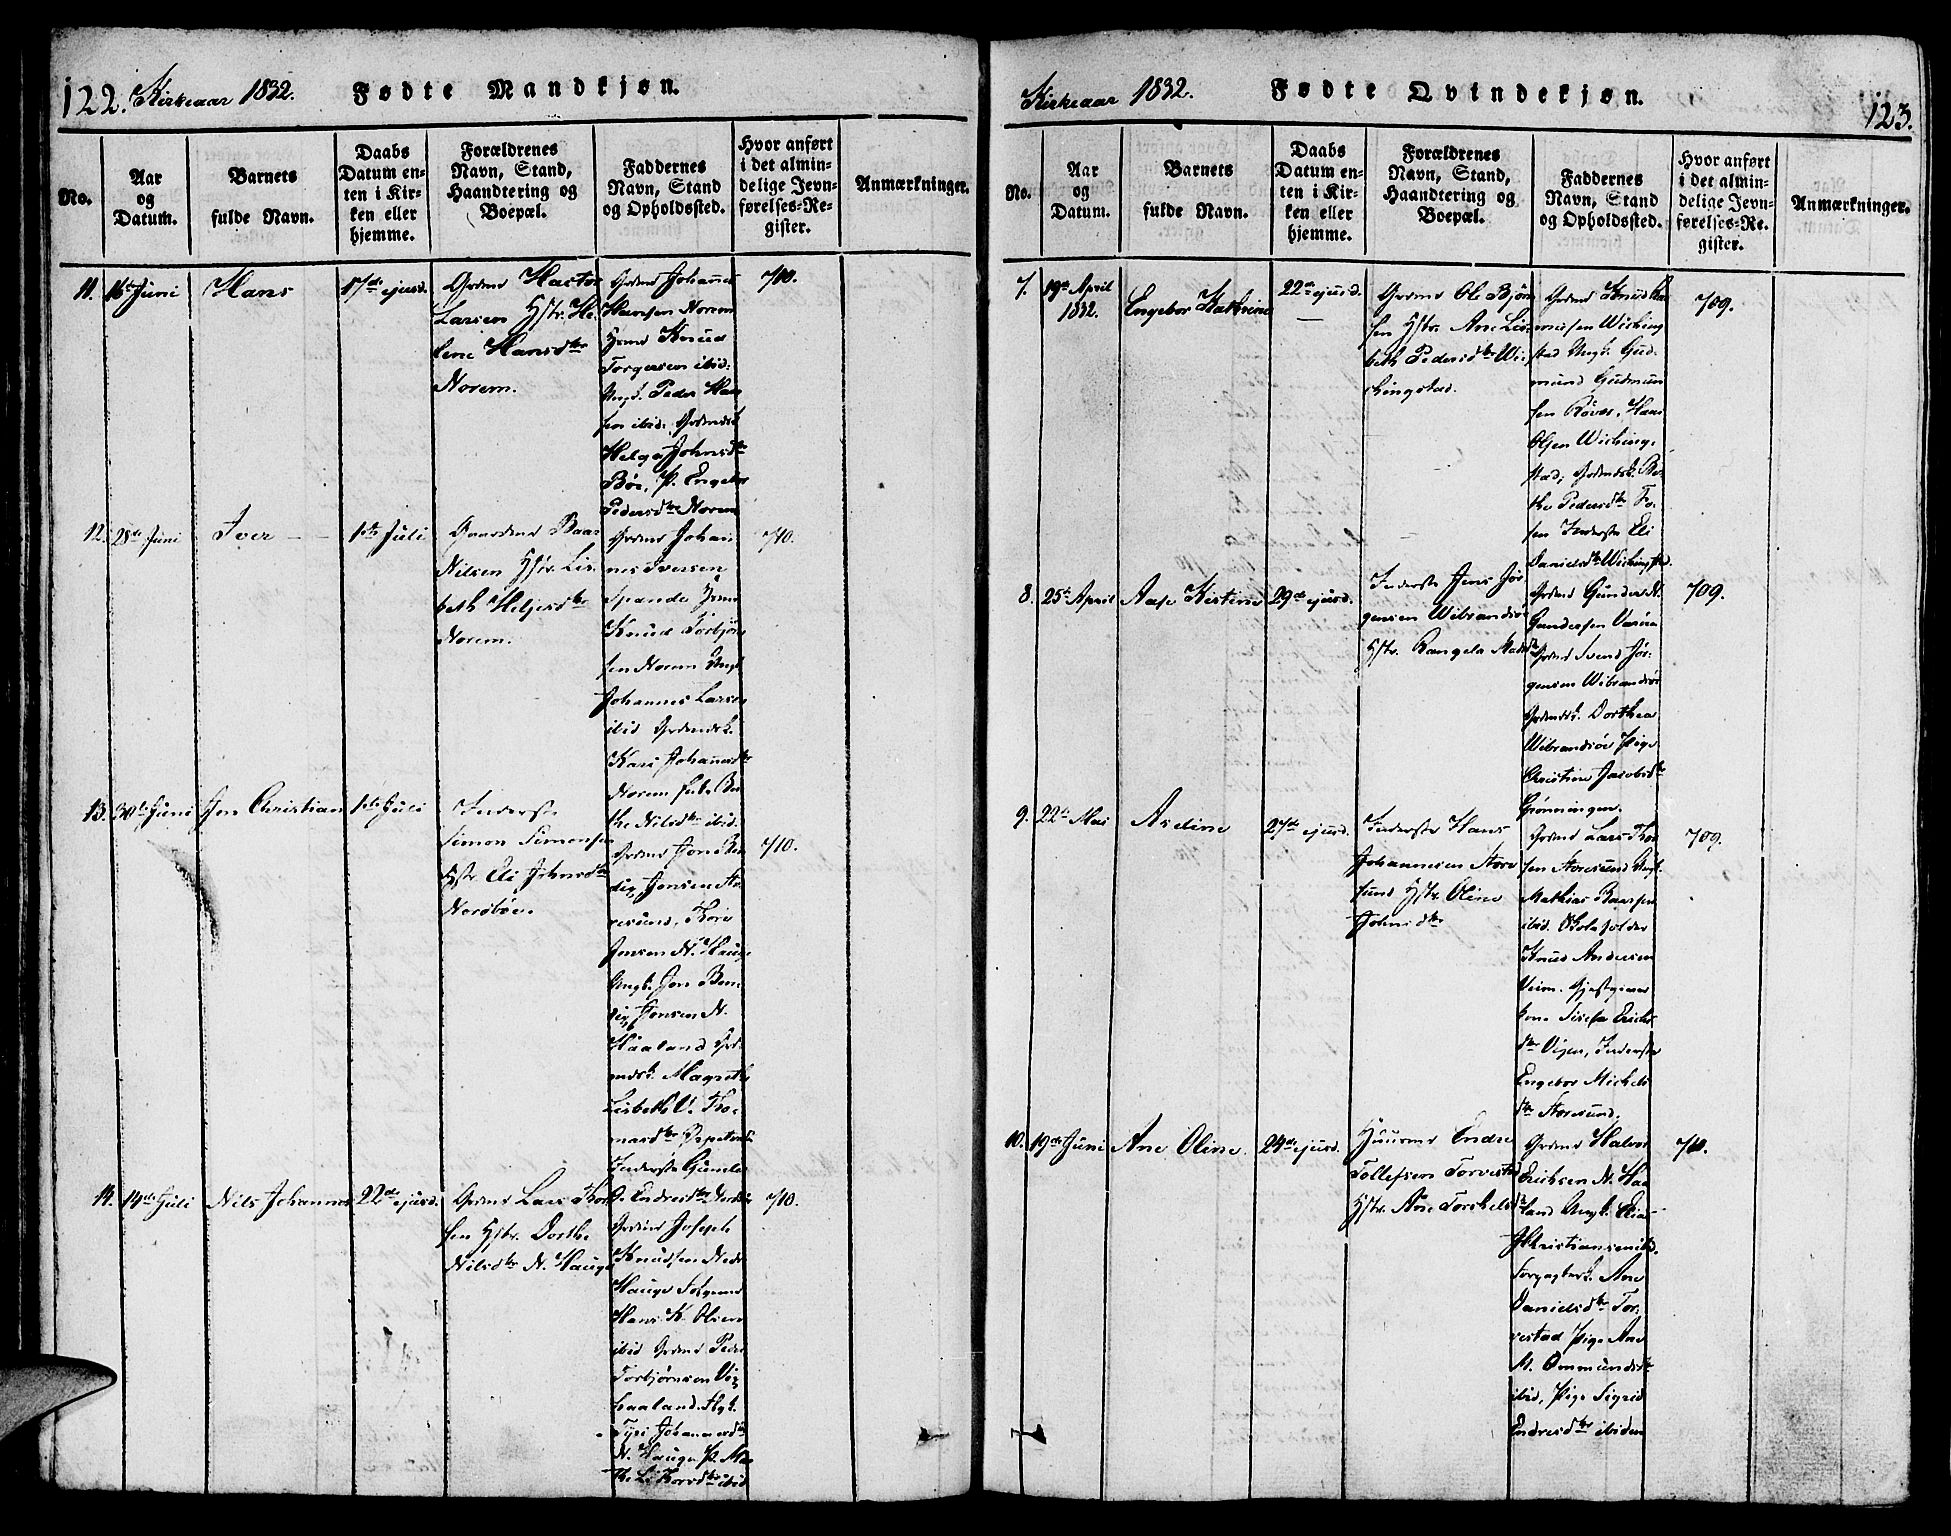 122. Kirkeaar 1832. Fødte Mandkjøn.
No.
Aar
og
Datum.
Barnets
fulde Navn.
Daabs
Datum en-
ten i Kir-
ken eller
hjemme.
Forældrenes
Navn, Stand,
Haandtering og
Boepæl.
Faddernes
Navn, Stand
og Opholdssted.
Hvor anført
i det almin-
delige Jevn-
førelses-Re-
gister.
Anmærkninger.
11. 16de Juni
Hans
17de ejusd.
Grdmd Hactor
Larsen Hstr. He-
lene Hansdtr
Norem.
Grdmd Johannes
Hansen Norem
Knud
Torgersen ibid.
Ungk. Peder Han-
sen ibid. Grdmdsk.
Helga Johnsdtr
Bøe, P. Engebor
Pedersdtr Norem
710.
12. 28de Juni
Iver
1ste Juli
Gaardmd Baar
Nilsen Hstr. Lis-
beth Heljesdtr
Norem.
Grdmd Johan-
nes Iversen
Spande
Knud Torbjørn-
sen Norem Ungk.
Johannes Larsen
ibid Grdmdsk.
Kari Johannesdtr
Norem
the Nilsdtr ibid.
710.
13. 30te Juni
Jon Christian
1ste Juli
Inderste
Simon Simonsen
Hstr Eli Johnsdtr
Nordbøe.
Grdmd Jon Ben-
dix Jensen Sto-
resund, Tore
Jensen N. Hauge
Ungk. Jon Ben-
dix Jonsen N.
Haaland Grd-
mdsk. Magrethe
Lisbeth V. Tho-
masdtr
Inderste Gunle
Endresdtr
710.
14. 14de Juli
Nils Johannes
22de ejusd.
Grdmd Lars Thor-
sen Hstr. Dorthe
Nilsdtr N. Hauge
Grdmd Joseph
Knudsen Nedr.
Hauge
Hans K. Olsen
ibid Grdmd Peder
Torbjørnsen
Haaland.
Tyri Johannesdtr
N. Hauge P. Mar-
the L. Thorsdtr ibid
710.
Kirkeaar 1832. Fødte Qvindekjøn. 123.
No.
Aar
og
Datum.
Barnets
fulde Navn.
Daabs
Datum en-
ten i Kir-
ken eller
hjemme.
Forældrenes
Navn, Stand,
Haandtering og
Boepæl.
Faddernes
Navn, Stand
og Opholdssted.
Hvor anført
i det almin-
delige Jevn-
førelses-Re-
gister.
Anmærkninger.
7. 19de April
1832.
Engebor Kathrine
22de ejusd.
Grdmd Ole Bjørn-
sen Hstr. Ane Lis-
beth Pedersdtr Wi-
chingstad.
Grdmd Knud Ras-
musen Wiching-
stad Ungk. Gud-
mund Gudmun-
sen Røvær, Hans
Olsen Wiching-
stad, Grdmdsk. Ber-
the Pedersdtr Fo-
sen Inderste Eli
Danielsdtr Wichingstad.
709.
8. 25de April
Aase Kistine
29de ejusd.
Inderste Jens Jør-
gensen Wibrandsøe
Hstr. Rangela Madsdtr
Grdmd Gunder N.
Gundersen
Grdmd Svend Jør-
gensen Wibrandsøe
Grdmdsk. Dorthea
Wibrandsøe Pige
Christine Jacobsdtr
Grønningen.
709.
9. 22de Mai
Aseline
27de ejusd.
Inderste Hans
Johannesen Store-
sund Hstr. Oline
Johnsdtr
Grdmd Lars Thor-
sen Storesund Ungk.
Mathias Baarsen
ibid. Skoleholder
Knud Andersen
Veim. Gjestgiver
kone Siselia Erichs-
dtr Vigen, Inderste
Engebor Michels-
dtr Storesund.
709.
10. 19de Juni
Ane Oline
24de ejusd.
Huusmd Endre
Tollefsen Torvestad
Hstr. Ane Torchelsdtr
Grdmd Halvor
Erichsen N. Haa-
land Ungk. Elias
Christiansen ibid.
Ane
Danielsdtr Tor-
vestad Pige Ane
M. Ommundsdtr
ibid, Pige Sigrid
Endresdtr ibidem
710.